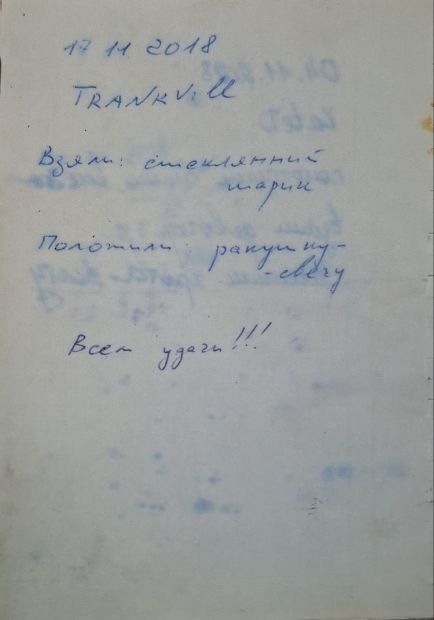 17 11 2018
TRANKVill
Взяли: стеклянний
шарик
Положили ракушку-
-свечу
Всем удачи!!!